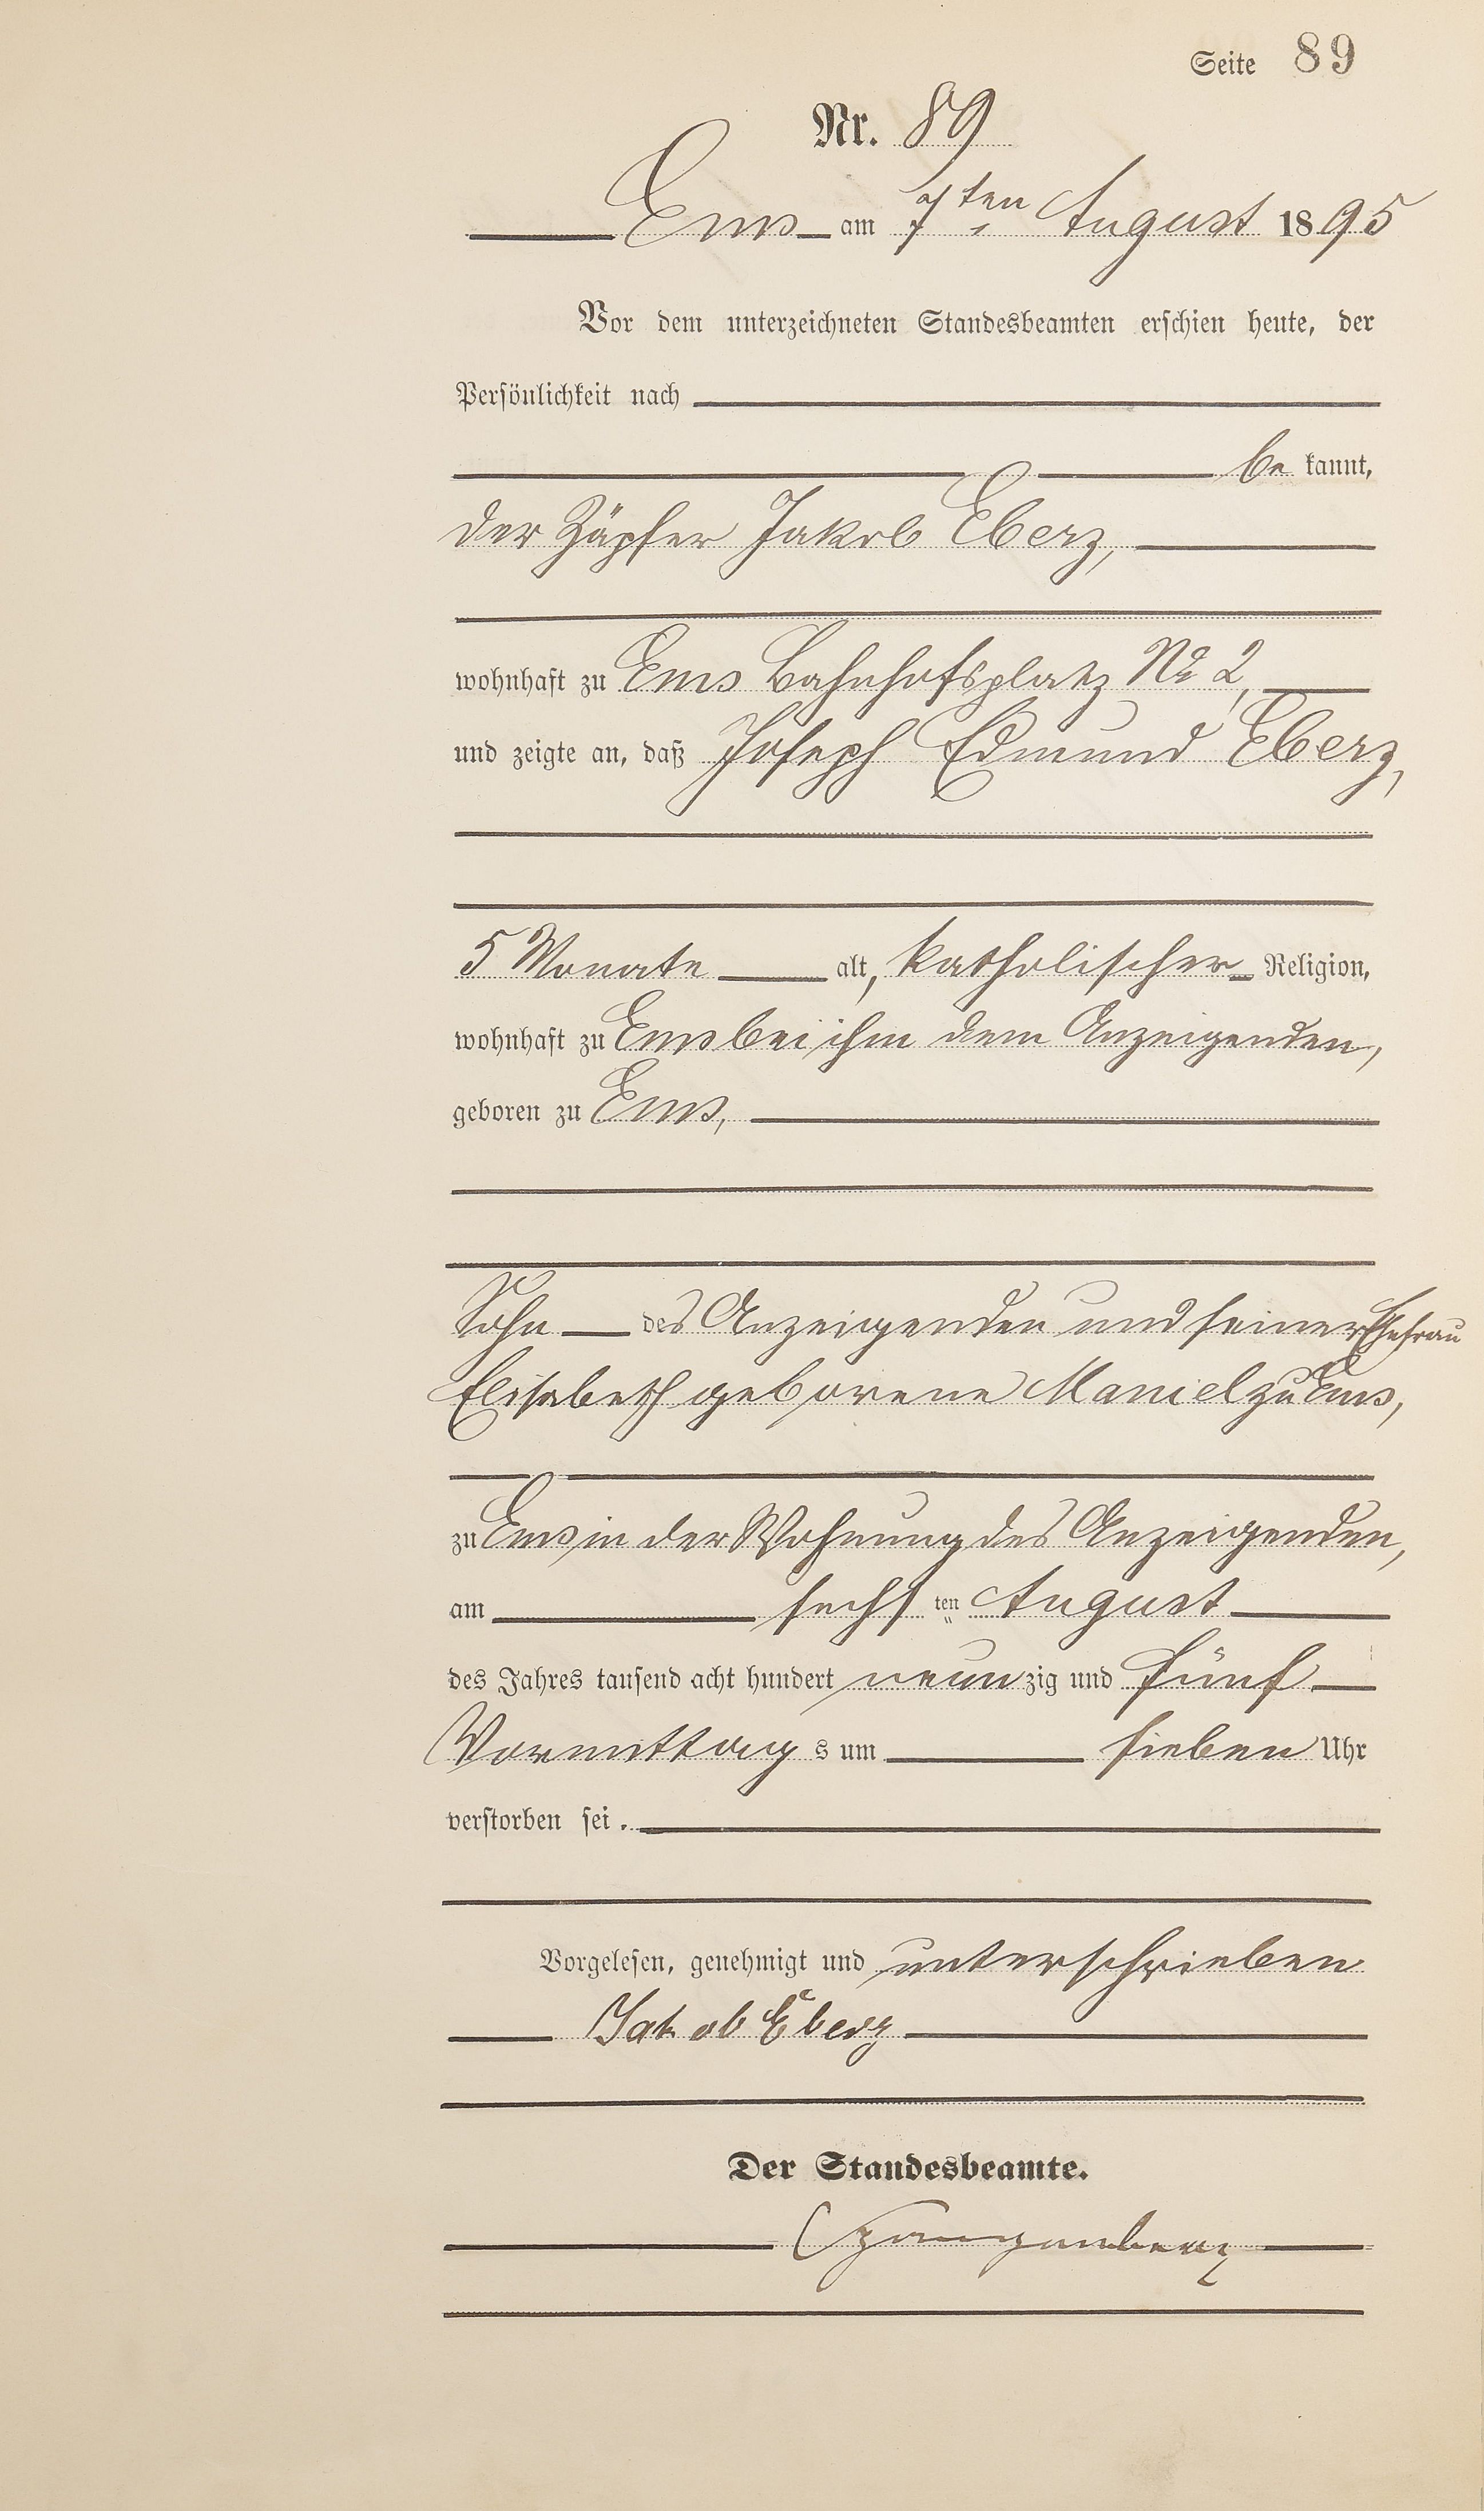 Seite 89
Nr. 89
Ems am 7ten August 1895
Vor dem unterzeichneten Standesbeamten erschien heute, der
Persönlichkeit nach
be kannt,
der Zäpfer Jakob Eberz,
wohnhaft zu Ems Bahnhofsplatz No 2,
und zeigte an, daß Joseph Edmund Eberz,
5 Monate alt, katholischer Religion,
wohnhaft zu Ems bei ihm dem Anzeigenden,
geboren zu Ems,
Sohn des Anzeigenden und seiner Ehefrau
Elisabeth geborene Maniel zu Ems,
zu Ems in der Wohnung des Anzeigenden,
am sechs ten August
des Jahres tausend acht hundert neun zig und fünf
Vormittag s um sieben Uhr
verstorben sei.
Vorgelesen, genehmigt und unterschrieben
Jakob Eberz
Der Standesbeamte.